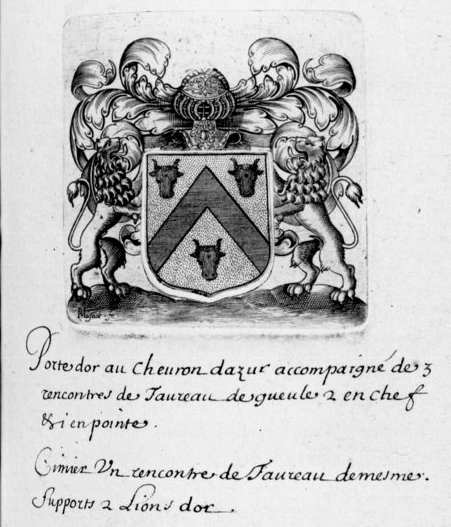 Porte dor au cheuron dazur accompaigné de 3
rencontres de Taureau de gueule 2 en chef
& i en pointe.
Cimier Vn rencontre de Taureau de mesme.
Supports 2 Lions dor.